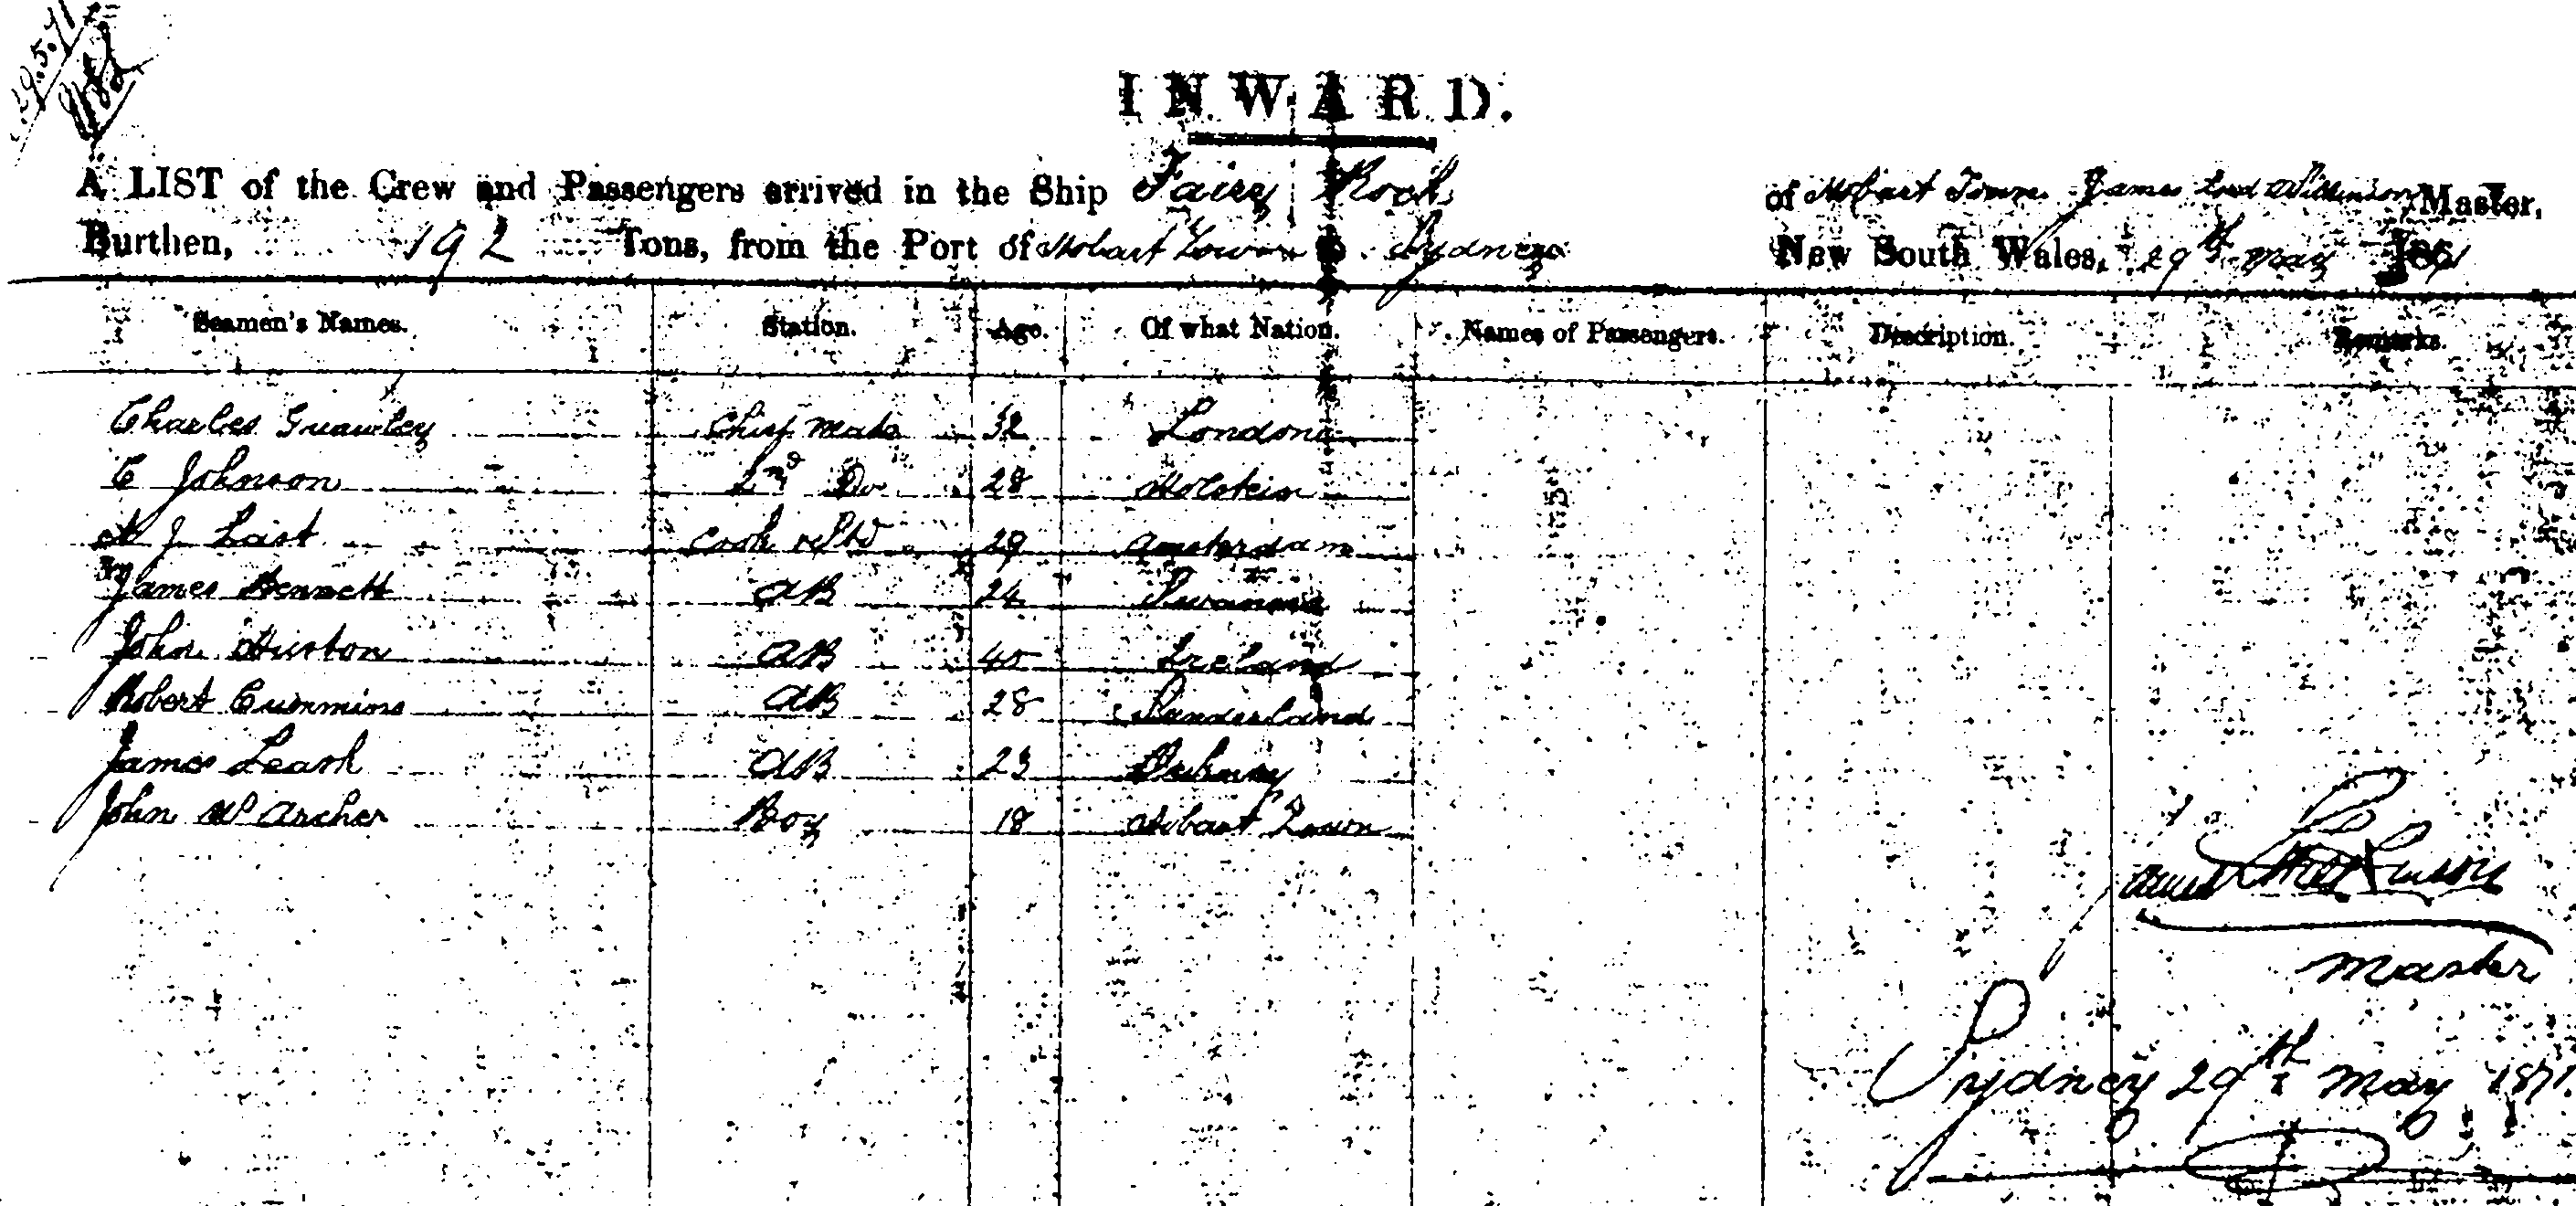 INWARD.
A LIST of the Crew and Passengers arrived in the Ship Fairy Rock of Hobart Town James Wilkinson Master,
Burthen, 192 Tons, from the Port of Hobart Town to Sydney New South Wales, 29th May 1871
Seamen's Names. Station. Age. Of what Nation. Names of Passengers. Description. Remarks.
Charles Chief Mate 32 London
C Johnson 2nd Do 28 Holstein
J Last Cook & Stwd 29 Amsterdam
James Bennett AB 24 Swansea
John Huston AB 40 Ireland
Robert Cummins AB 28 Sunderland
James Leash AB 23
John Archer Boy 18 Hobart Town
Master
Sydney 29th May 1871.